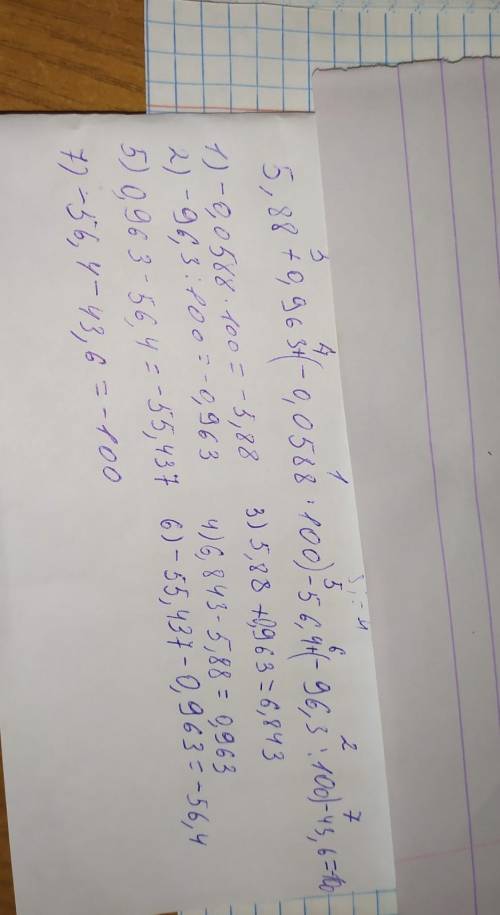 5,88+0,963+(-0,0588·100)-56,4+(-96,3:100)-43,6=-100
3 4 1 5 6 2 7
1) -0,0588·100=-5,88
2) -96,3:100=-0,963
3) 5,88+0,963=6,843
4) 6,843-5,88=0,963
5) 0,963-56,4=-55,437
6) -55,437-0,963=-56,4
7) -56,4-43,6=-100